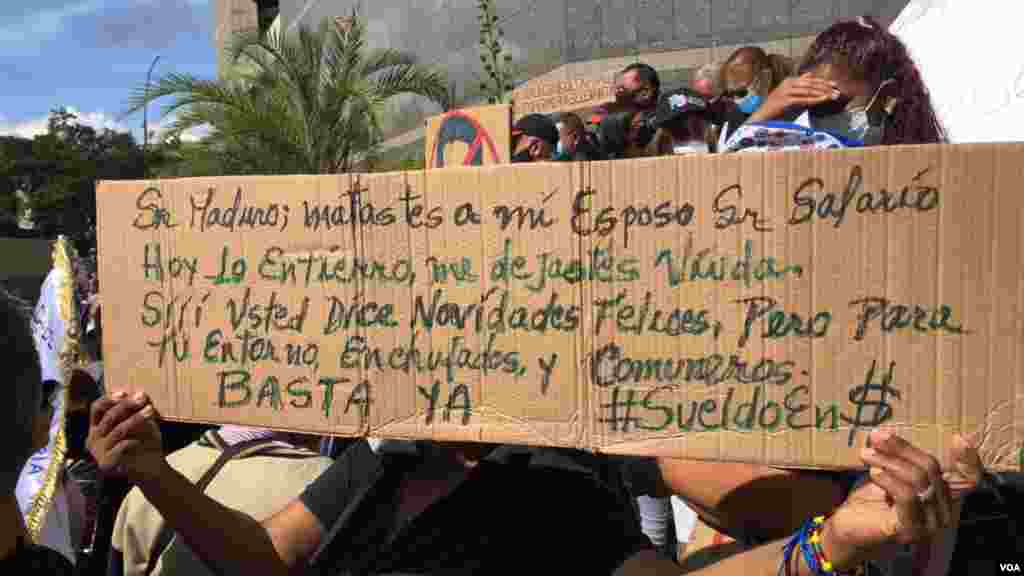 Sr Maduro; matastes a mí Esposo Sr Salario
Hoy Lo Entierro, me dejastes Viuda.
Siii Usted Dice Novidades Felices, Pero Para
Tu Entorno, Enchufados, y Comuneros.
BASTA YA #SueldoEn$
VOA